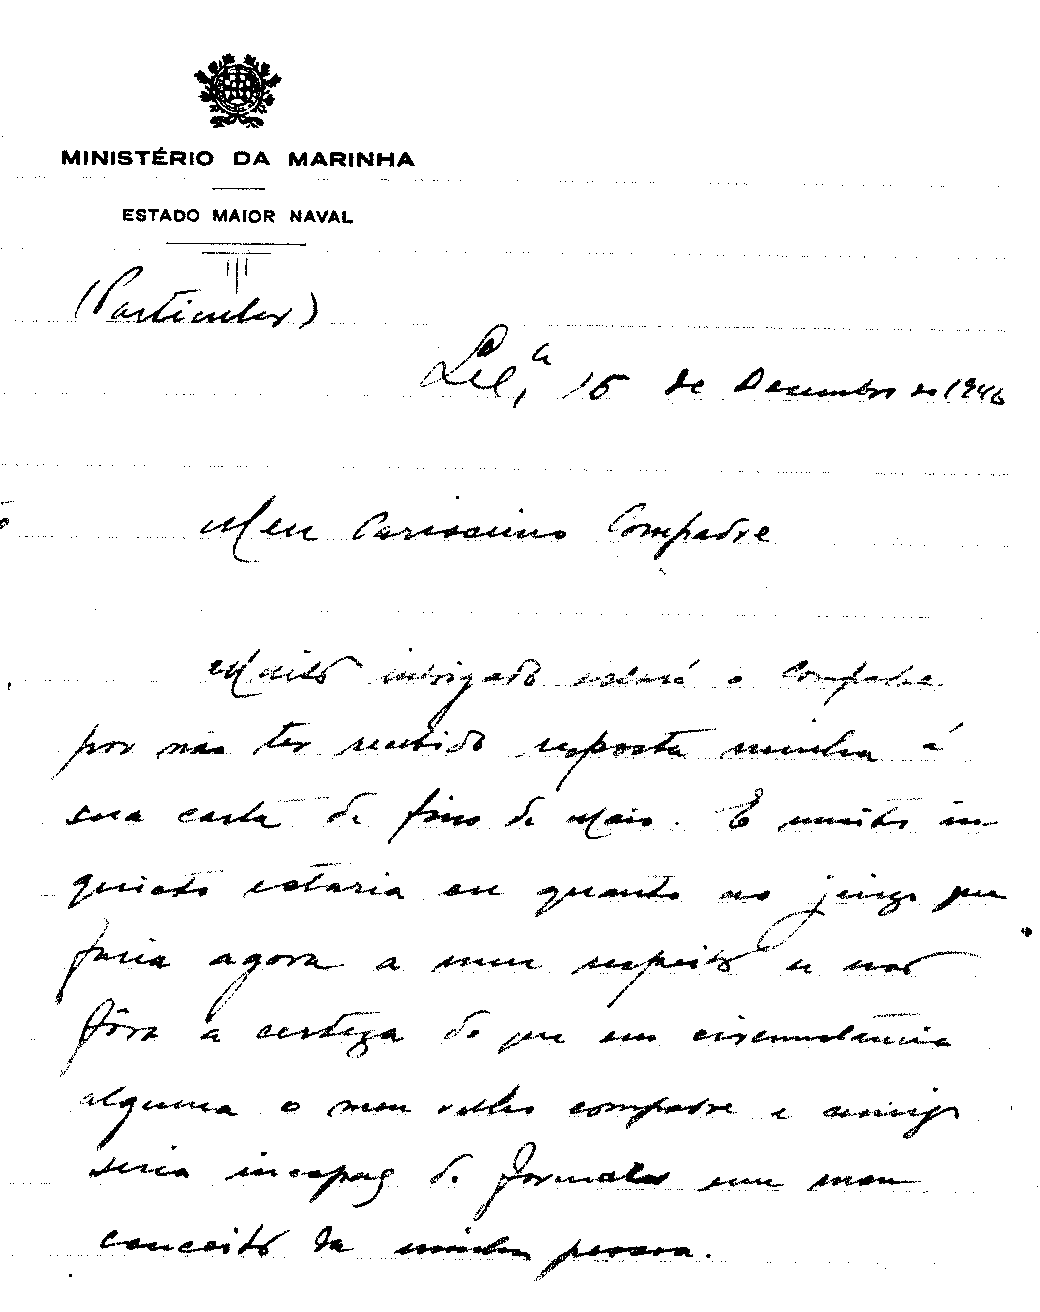 MINISTÉRIO DA MARINHA
ESTADO MAIOR NAVAL
(Particular)
15 de Dezembro de 1946
Meu Carissimo Compadre
Muito intrigado estará o Compadre
por não ter recebido resposta minha á
sua carta de fins de Maio. E muito in
quieto estaria eu quanto ao juizo que
faria agora a meu respeito se não
fôra a certeza de que em circunstancia
alguma o meu velho compadre e amigo
seria incapaz de formular um mau
conceito da minha pessoa.